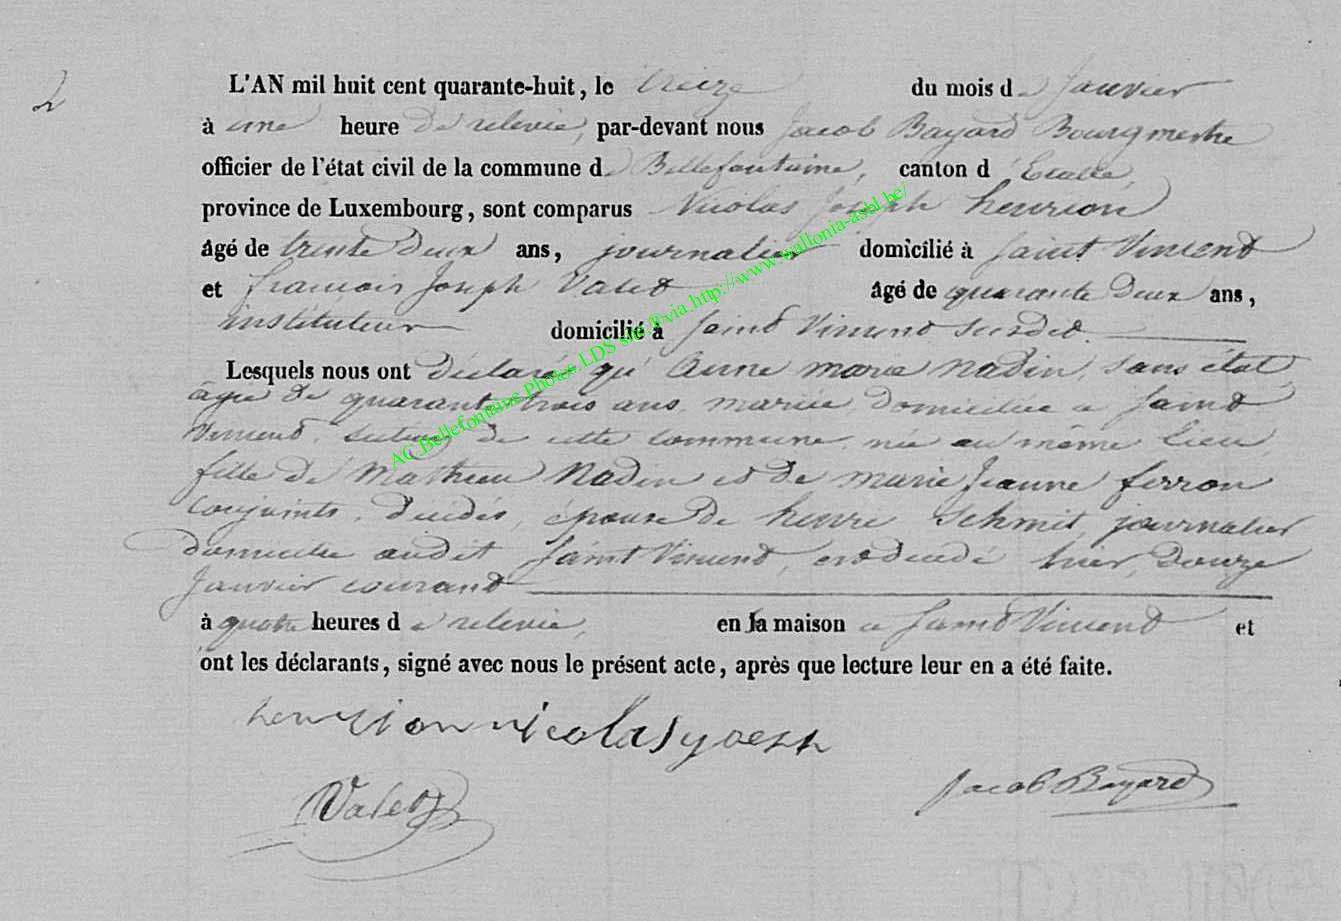 2
L'AN mil huit cent quarante-huit, le treize du mois de Janvier
à une heure de relevée, par-devant nous Jacob Bayard Bourgmestre
officier de l'état civil de la commune de Bellefontaine, canton d'Etalle,
province de Luxembourg, sont comparus Nicolas Joseph henrion
âgé de trente deux ans, journalier domicilié à Saint Vincent
et francois Joseph Valet âgé de quarante deux ans,
instituteur domicilié à Saint Vincent susdit.
Lesquels nous ont déclaré qu'Anne marie nadin, sans état
âgée de quarante trois ans mariée domiciliée a Saint
Vincent, section de cette commune née au même lieu
fille de Mathieu Nadin et de marie Jeanne ferron
conjoints, décédés, épouse de henri Schmit, journalier
domicilié audit Saint Vincent, est décédé hier, douze
Janvier courant
à quatre heures de relevée, en la maison a Saint Vincent et
ont les déclarants, signé avec nous le présent acte, après que lecture leur en a été faite.
henrion nicolas
Valet
Jacob Bayard
AC Bellefontaine Photos LDS via http://www.wallonia-asbl.be/